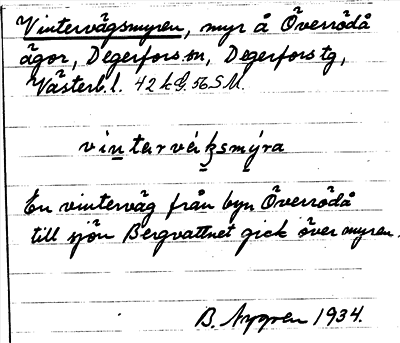 Vintervägsmyren, myr å Överrödå
ägor, Degerfors sn, Degerfors tg,
Västerb. l. 42 k G. 56 S M.
vi̲nṯarvéksmýra
En vinterväg från byn Överrödå
till sjön Bergvattnet gick över myren.
B. Nygren 1934.